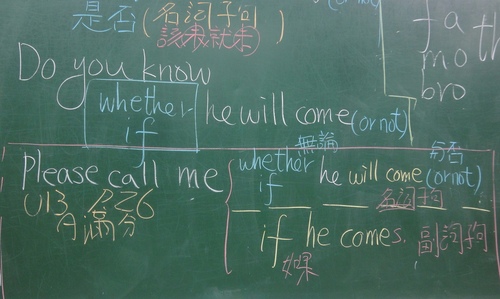 是否(名詞子句) (or not)
該來就來)
Do you know
whether
if
he will come (or not)
fa
mo
bro
th
無論 與否
Please call me
whether
if
he will come (or not)
名詞
U13 P.26
A滿分
if he comes. 副詞
如果